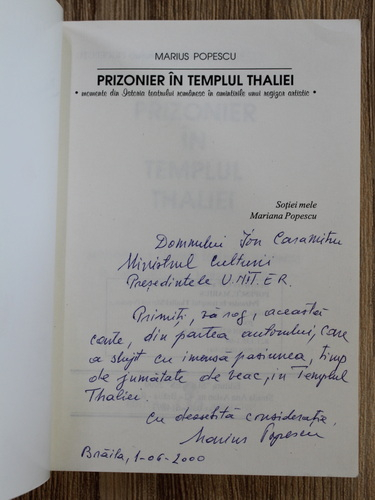 MARIUS POPESCU
PRIZONIER ÎN TEMPLUL THALIEI
• momente din Istoria teatrului românesc în amintirile unui regizor artistic •
PRIZONIER
ÎN
TEMPLUL
THALIEI
Soției mele
Mariana Popescu
Domnului Ion Caramitru
Ministrul Culturii
Președintele U.N.I.T.E.R.
Primiți, vă rog, această
carte, din partea autorului, care
a slujit cu imensă pasiunea, timp
de jumătate de veac, în Templul
Thaliei.
cu deosebită considerație,
Marius Popescu
Brăila, 1-06-2000